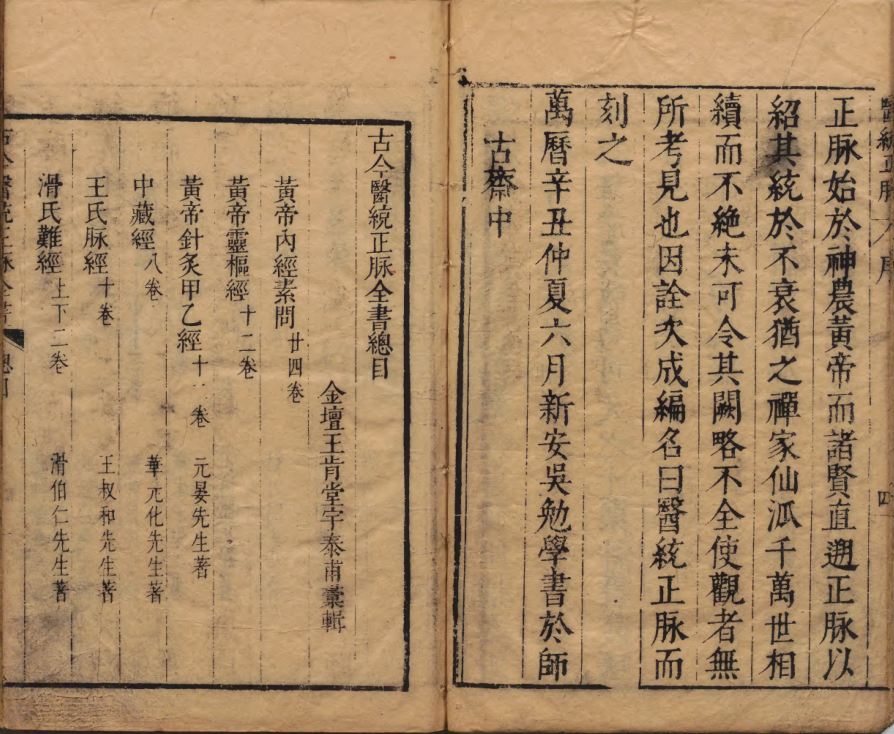 醫統正脉 序
四
正脉始於神農黄帝而諸賢直遡正脉以
紹其統於不衰猶之禪家仙派千萬世相
續而不絶未可令其闕略不全使觀者無
所考見也因詮次成編名曰醫統正脉而
刻之
萬曆辛丑仲夏六月新安吳勉學書於師
古齋中
古今醫統正脉全書總目
金壇王肯堂宇泰甫彚輯
黃帝內經素問 廿四卷
黃帝靈樞經 十二卷
黃帝針灸甲乙經 十二卷 元晏先生著
中藏經 八卷 華元化先生著
王氏脉經 十卷 王叔和先生著
滑氏難經 上下二卷 滑伯仁先生著
古今醫統正脉全書 總目